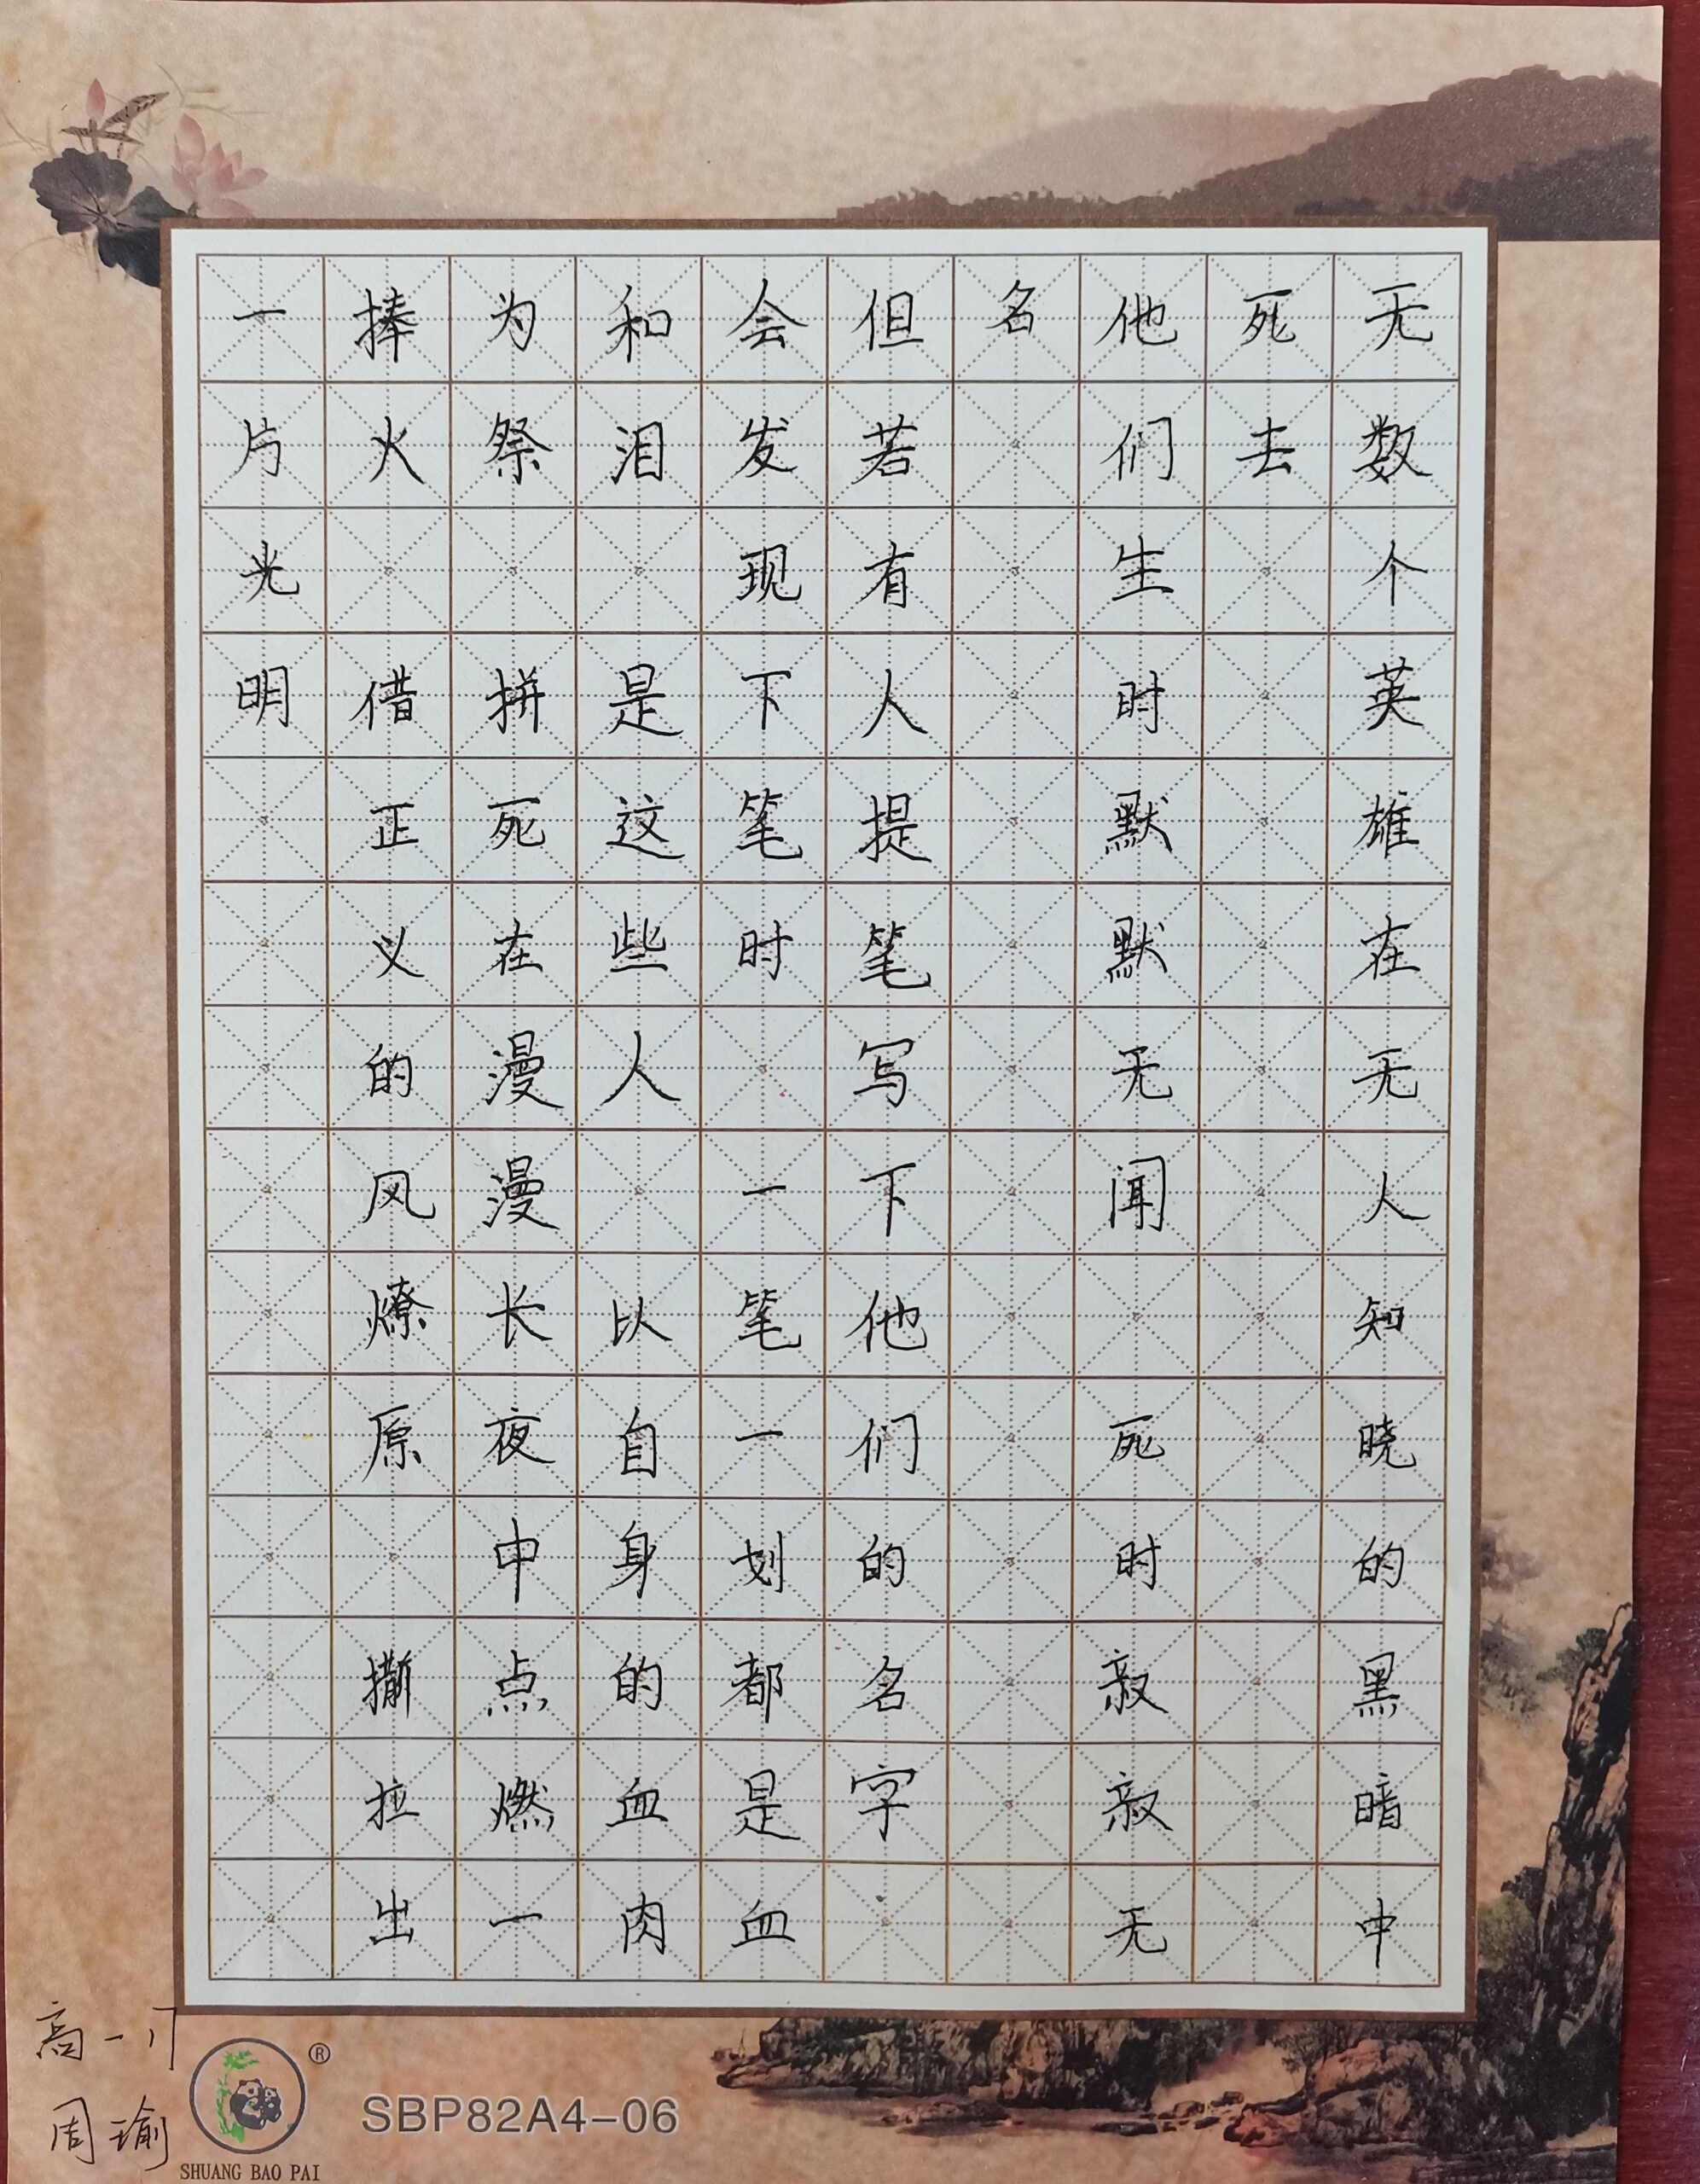 无数个英雄在无人知晓的黑暗中
死去
他们生时默默无闻 死时寂寂无
名
但若有人提笔写下他们的名字
会发现下笔时 一笔一划都是血
和泪 是这些人 以自身的血肉
为祭 拼死在漫漫长夜中点燃一
捧火 借正义的风燎原 撕拉出
一片光明
高一17
周瑜
®
SHUANG BAO PAI
SBP82A4-06